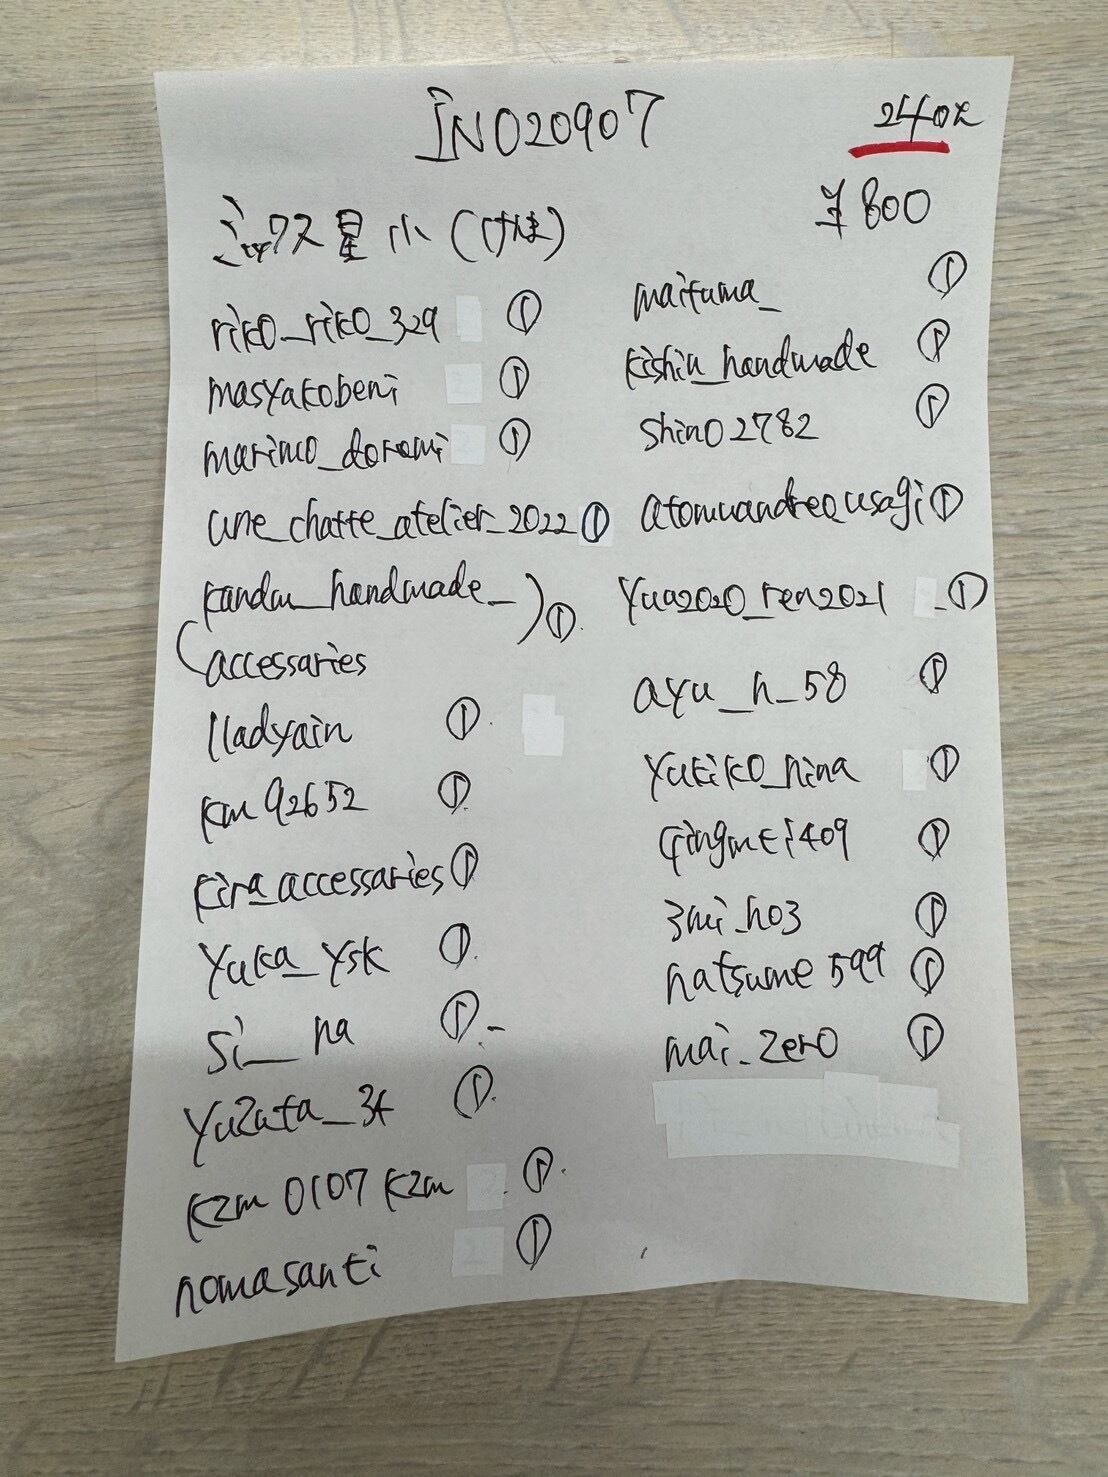 INO20907
240え
¥800
ミックス星小(けま)
riko_riko_329 ①
masyakobeni ①
marimo_doremi ①
une_chatte_atelier_2022 ①
(kandm_handmade_) ①
accessaries
lladyain ①
km92652 ①
kira_accessaries ①
yuka_ysk ①
si__na ①
yuzuta_34 ①
kzm0107kzm ①
nomasanti ①
maituma_ ①
kishin_handmade ①
shino2782 ①
atomuandreausagi ①
yua2020_ren2021 ①
ayu_h_58 ①
yukiko_nina ①
qingmei409 ①
3mi_ho3 ①
natsume599 ①
mai_zero ①